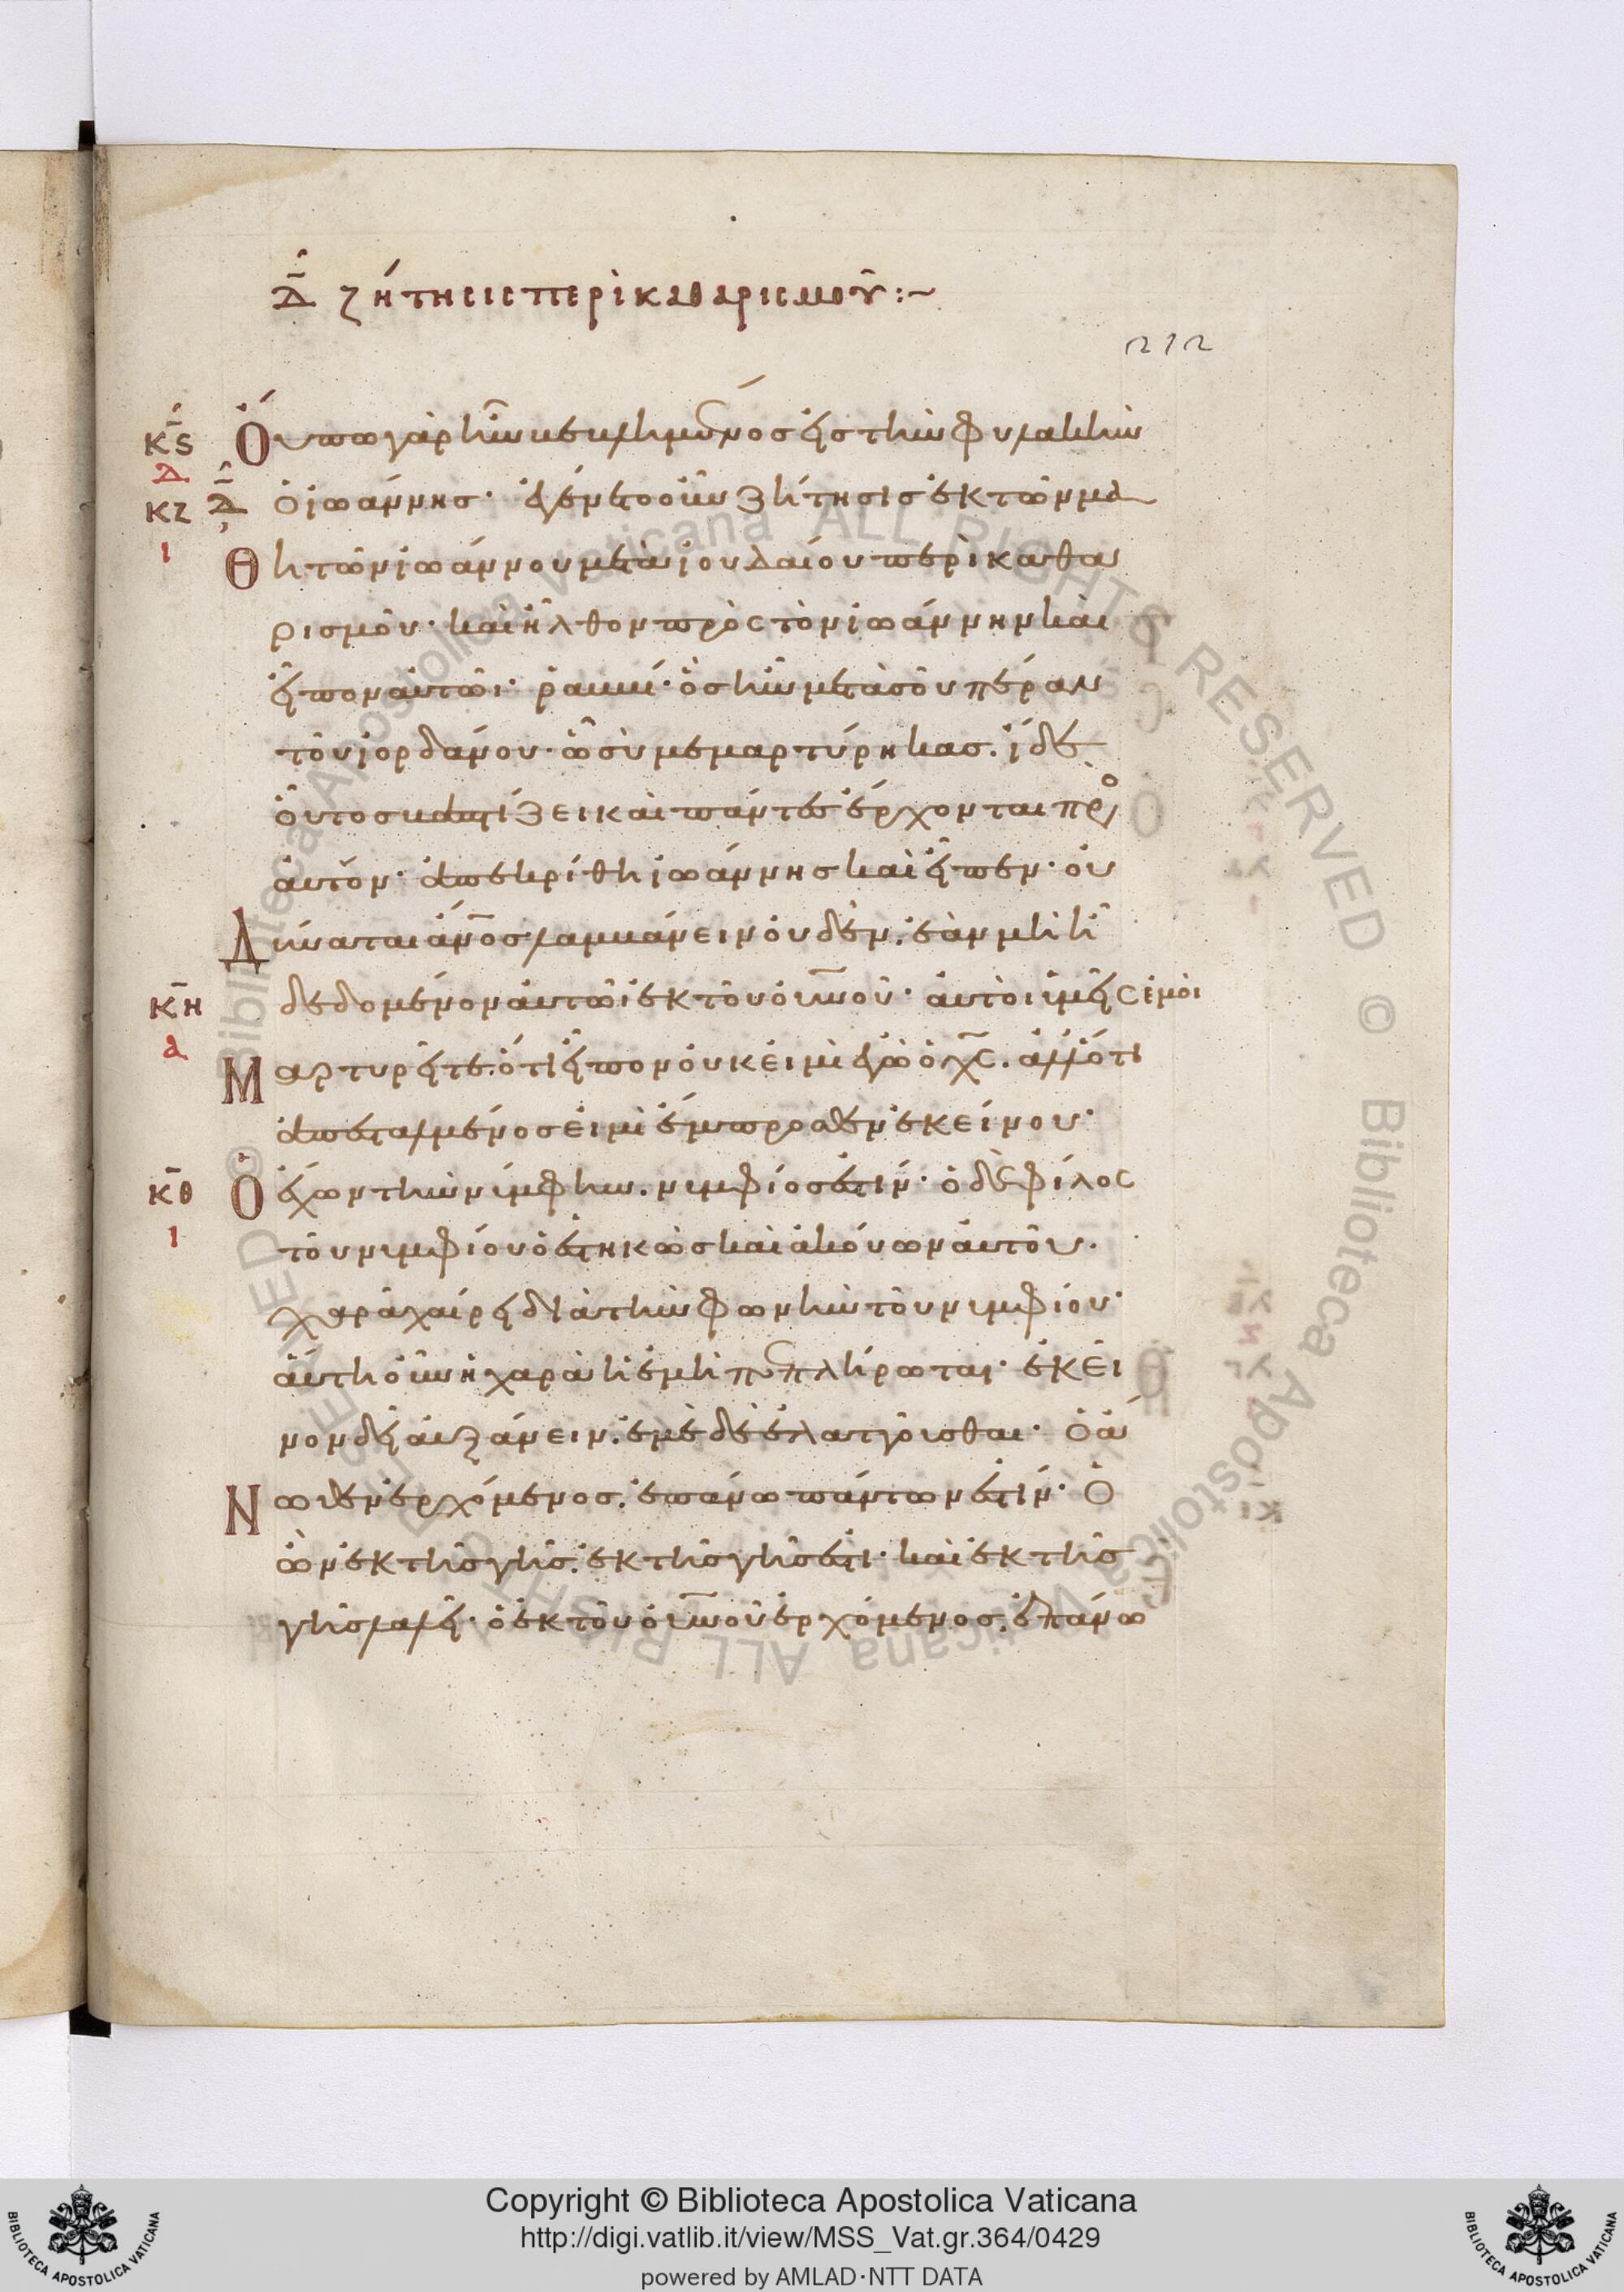 Δ ζήτησις περὶ καθαρισμοῦ:~
212
κϛ Οὔπω γὰρ ἦν βεβλημένος εἰς τὴν φυλακὴν
δ
κζ Δ ὁ ἰωάννης· ἐγένετο οὖν ζήτησις ἐκ τῶν μα
ι θητῶν ἰωάννου μετὰ ἰουδαίου περὶ καθα
ρισμοῦ· καὶ ἦλθον πρὸς τὸν ἰωάννην καὶ
εἶπον αὐτῶι· ῥαββί· ὃς ἦν μετὰ σοῦ πέραν
τοῦ ἰορδάνου· ὧ σὺ μεμαρτύρηκας. ἴδε
οὗτος βαπτίζει καὶ πάντες ἔρχονται πρὸ
αὐτόν· ἀπεκρίθη ἰωάννης καὶ εἶπεν· οὐ
Δύναται ἄνος λαμβάνειν οὐδέν. ἐὰν μὴ ἦ
κη δεδομένον αὐτῶ ἐκ τοῦ οὐνοῦ· αὐτοὶ ὑμεῖς ἐμοὶ
α
Μαρτυρεῖτε. ὅτι εἶπον οὐκ εἰμὶ ἐγὼ ὁ χς. ἀλλ' ὅτι
ἀπεσταλμένος εἰμὶ ἔμπροσθεν ἐκείνου·
κθ Ὁ ἔχων τὴν νύμφην. νυμφίος ἐστίν· ὁ δὲ φίλος
ι
τοῦ νυμφίου ὁ ἑστηκὼς καὶ ἀκούων αὐτοῦ.
χαρᾶ χαίρει διὰ τὴν φωνὴν τοῦ νυμφίου·
αὕτη οὖν ἡ χαρὰ ἡ ἐμὴ πεπλήρωται· ἐκεῖ
νον δεῖ αὐξάνειν. ἐμὲ δὲ ἐλαττοῦσθαι· Ὁ ἄ
Νωθεν ἐρχόμενος. ἐπάνω πάντων ἐστίν· Ὁ
ὢν ἐκ τῆς γῆς. ἐκ τῆς γῆς ἐστι· καὶ ἐκ τῆς
γῆς λαλεῖ· ὁ ἐκ τοῦ οὐνοῦ ἐρχόμενος. ἐπάνω
Copyright © Biblioteca Apostolica Vaticana
http://digi.vatlib.it/view/MSS_Vat.gr.364/0429
powered by AMLAD·NTT DATA
BIBLIOTECA APOSTOLICA VATICANA
BIBLIOTECA APOSTOLICA VATICANA
© Biblioteca Apostolica Vaticana ALL RIGHTS RESERVED
© Biblioteca Apostolica Vaticana ALL RIGHTS RESERVED